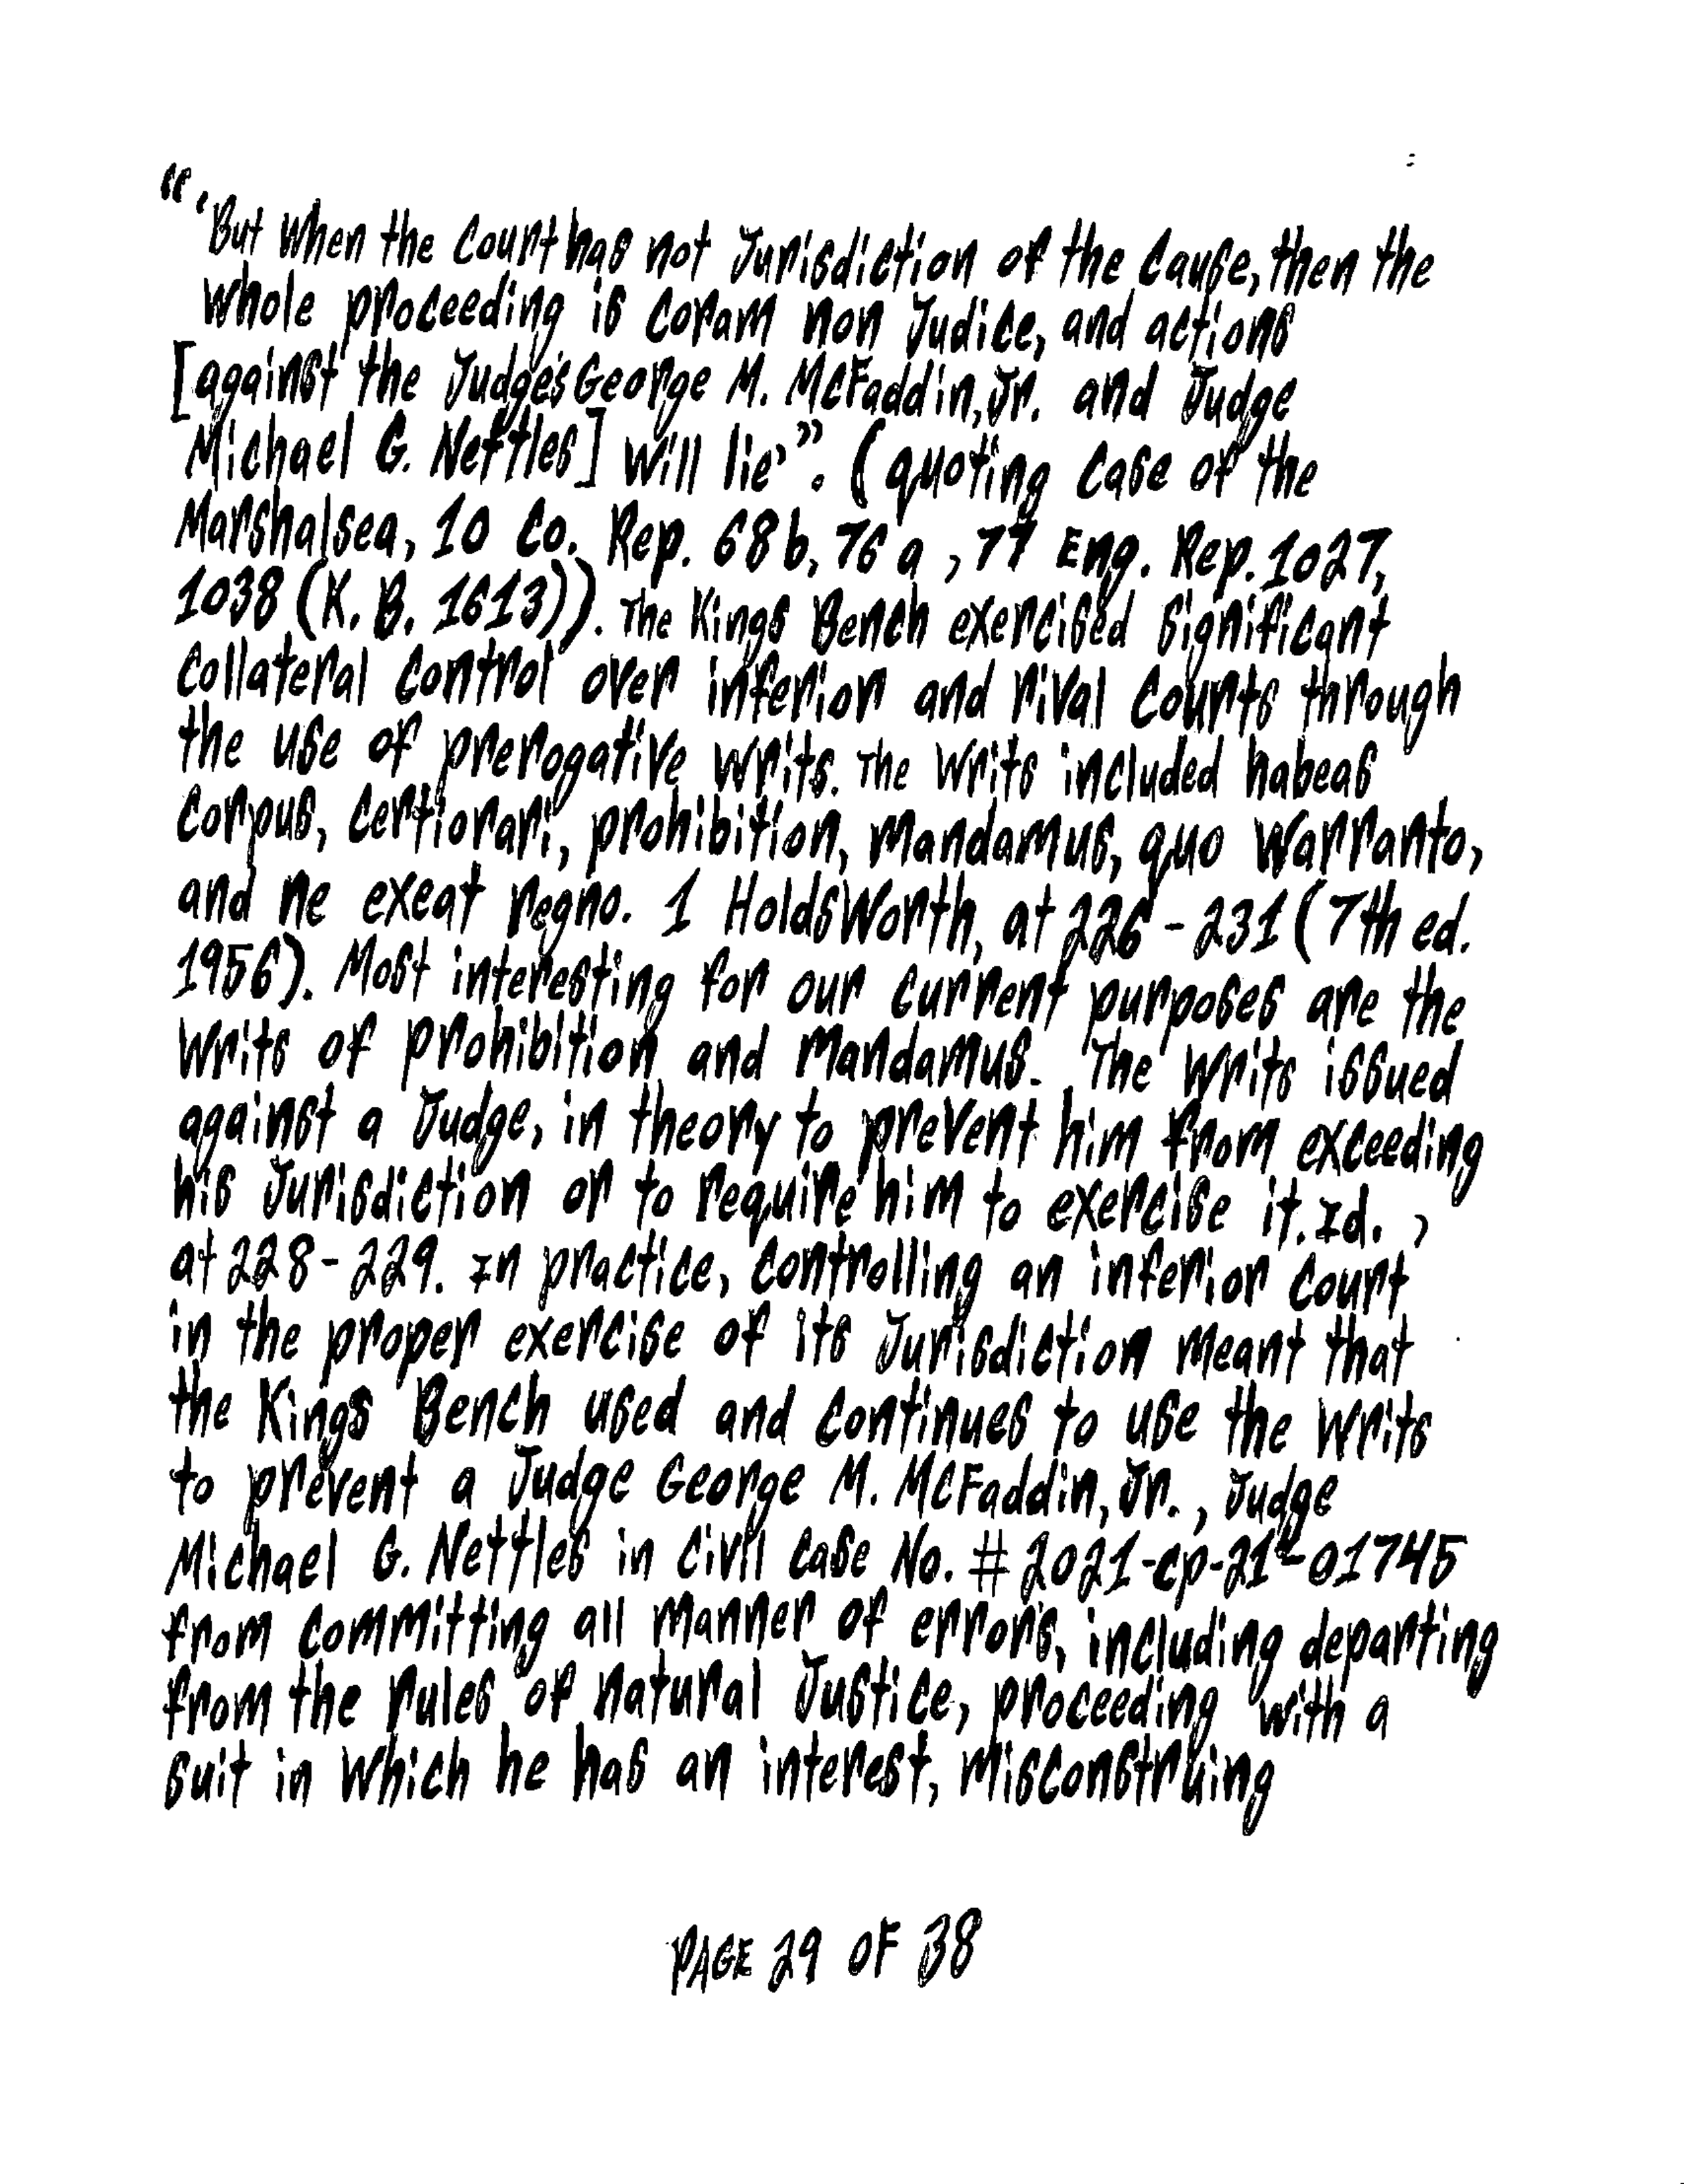 "'But When the Court has not Jurisdiction of the Cause, then the
whole proceeding is coram non Judice, and actions
[against the Judge's George M. McFaddin, Jr. and Judge
Michael G. Nettles] will lie'". (quoting Case of the
Marshalsea, 10 Co. Rep. 68b, 76 a, 77 Eng. Rep. 1027,
1038 (K. B. 1613)). The Kings Bench exercised significant
collateral control over inferior and rival Courts through
the use of prerogative writs. The writs included habeas
corpus, certiorari, prohibition, mandamus, quo warranto,
and ne exeat regno. 1 HoldsWorth, at 226-231 (7th ed.
1956). Most interesting for our current purposes are the
writs of prohibition and mandamus. The writs issued
against a Judge, in theory to prevent him from exceeding
his Jurisdiction or to require him to exercise it. Id.,
at 228-229. In practice, controlling an inferior court
in the proper exercise of its Jurisdiction meant that
the Kings Bench used and continues to use the writs
to prevent a Judge George M. McFaddin, Jr., Judge
Michael G. Nettles in civil case No. # 2021-cp-21-01745
from committing all manner of errors, including departing
from the rules of natural Justice, proceeding with a
suit in which he has an interest, misconstruing
PAGE 29 OF 38